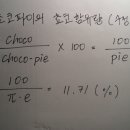 초코파이와 초코 함유량
choco / choco-pie × 100 = 100 / pie
100 / π-e = 11.71 (%)